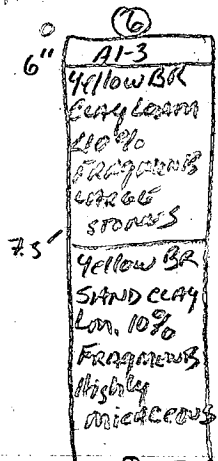 6
0
A1-3
6"
Yellow BR
CLAY LOAM
<10%
FRAGMENTS
LARGE
STONES
7.5'
Yellow BR
SAND CLAY
Lm. 10%
FRAGMENTS
Highly
micaceous